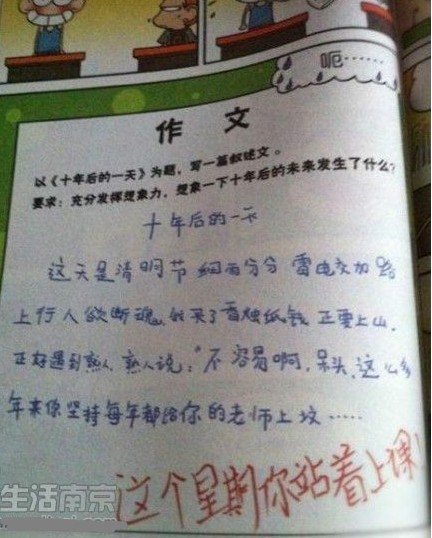 呃……
作 文
以《十年后的一天》为题，写一篇叙述文。
要求：充分发挥想象力，想象一下十年后的未来发生了什么？
十年后的一天
这天是清明节 细雨分分 雷电交加 路
上行人欲断魂，我买了香烛纸钱 正要上山，
正好遇到熟人，熟人说：“不容易啊，呆头，这么多
年来你坚持每年都给你的老师上坟……
这个星期你站着上课！
生活南京